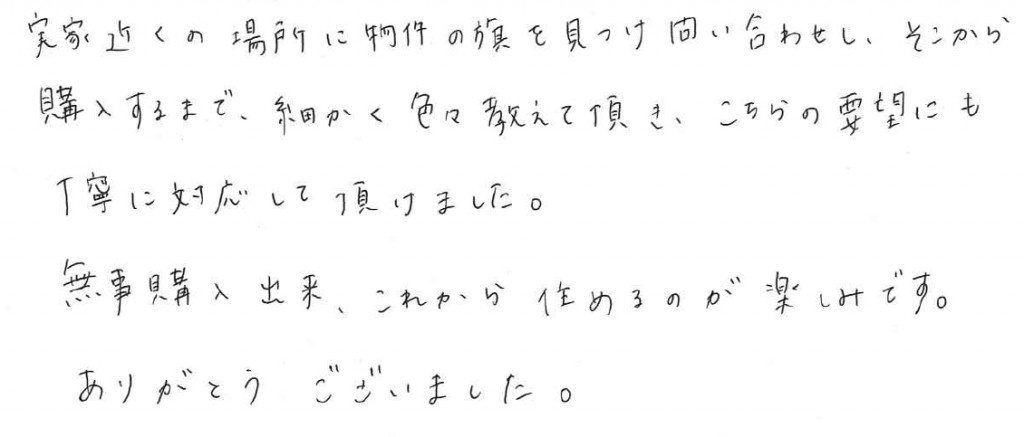 実家近くの場所に物件の旗を見つけ問い合わせし、そこから
購入するまで、細かく色々教えて頂き、こちらの要望にも
丁寧に対応して頂けました。
無事購入出来、これから住めるのが楽しみです。
ありがとうございました。